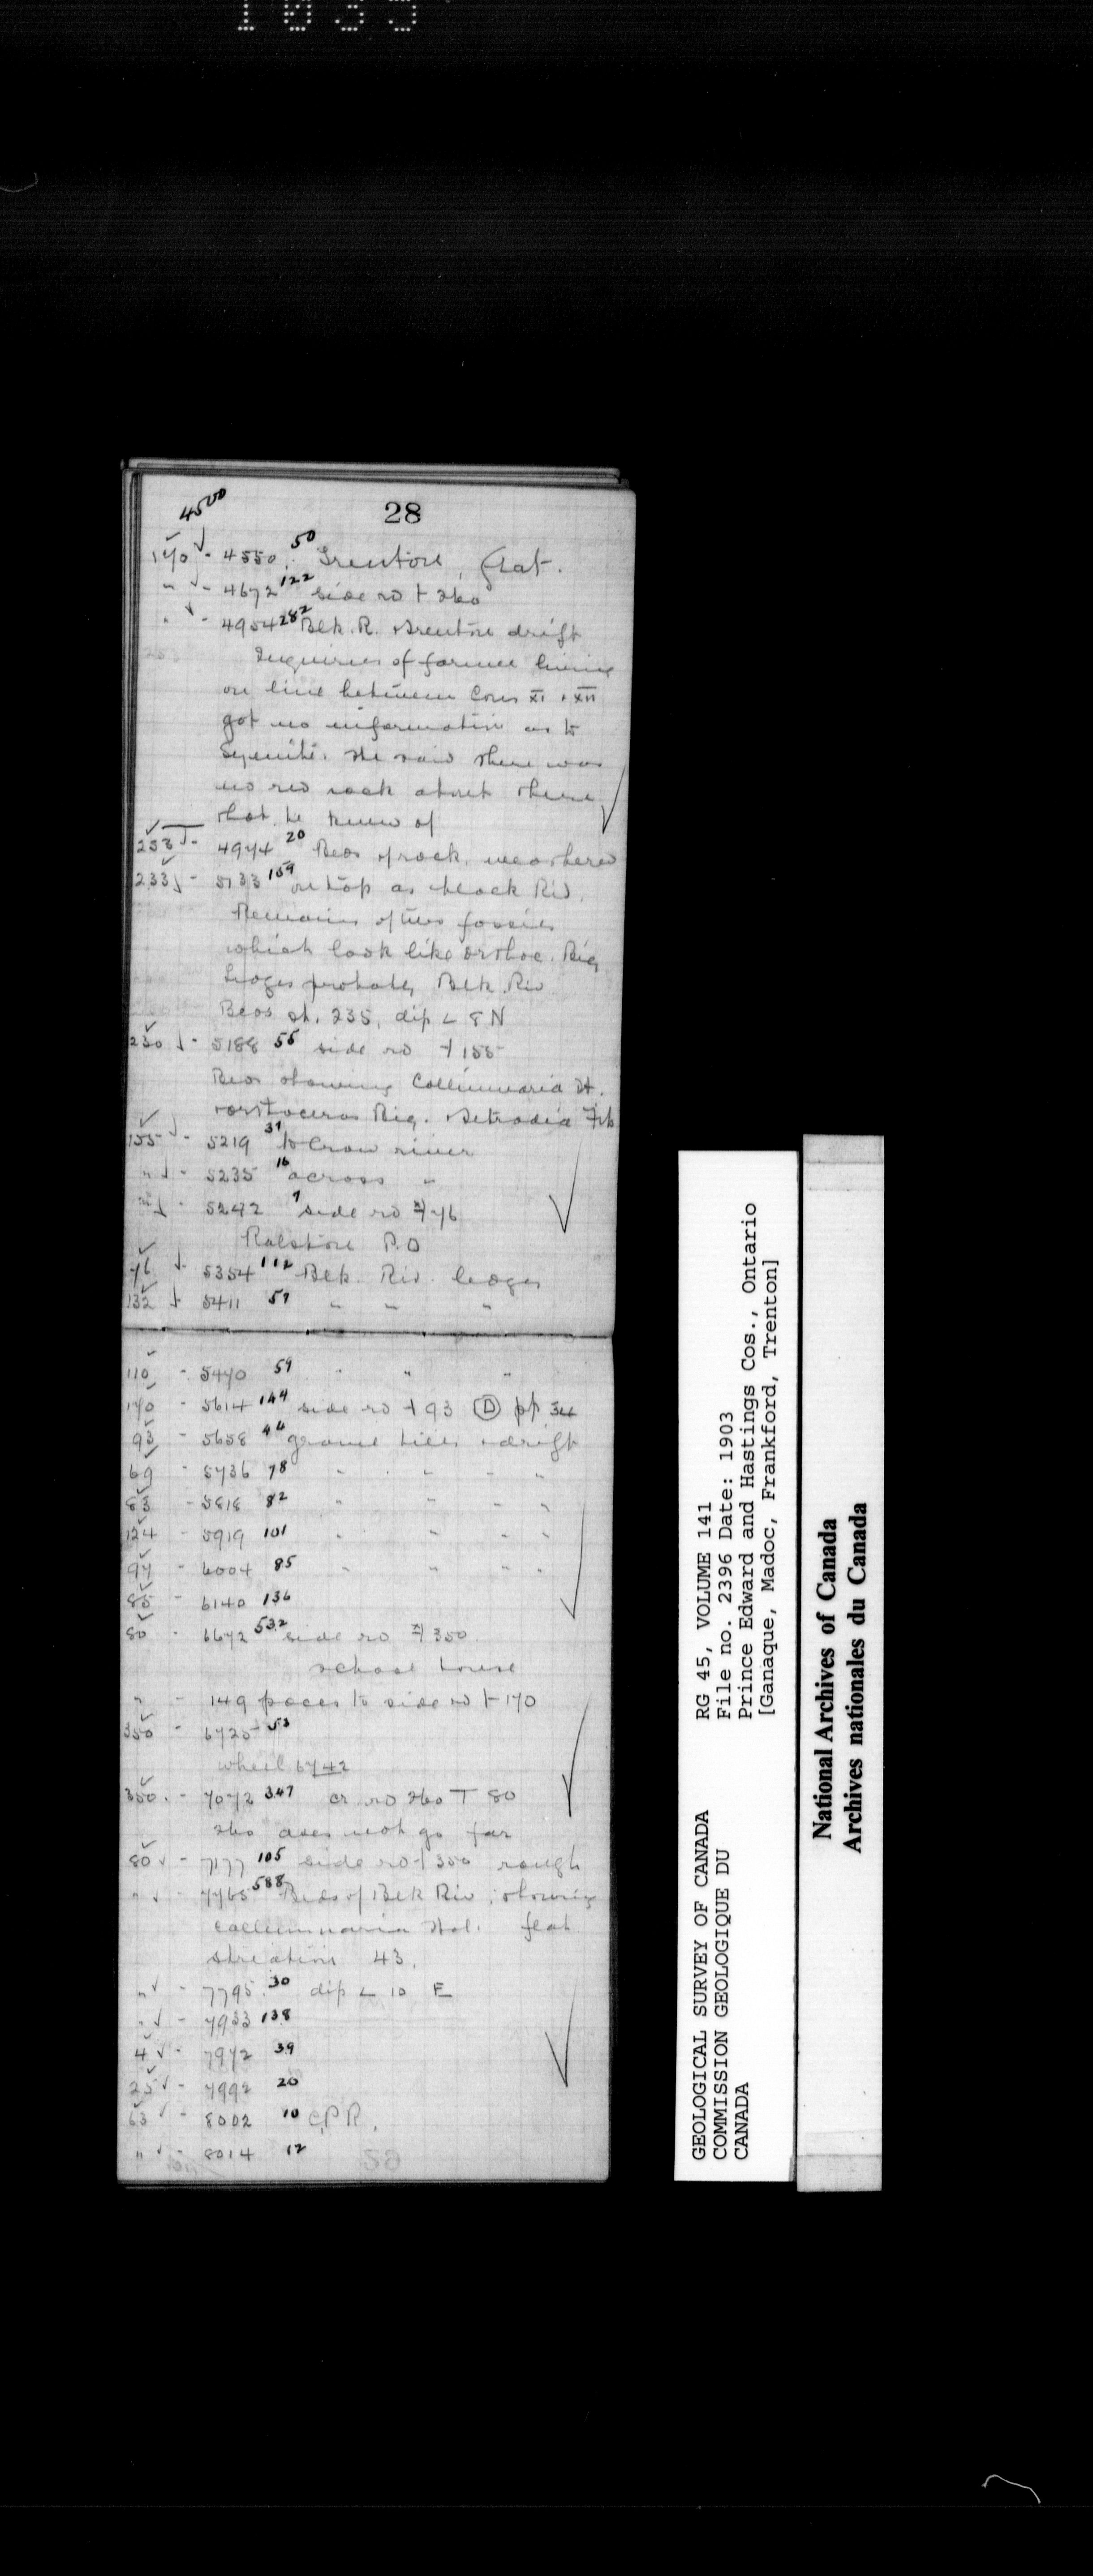 1035
28
4500
170 - 4550 50 Trenton, flat.
" - 4672 122 side rd + 260
" - 4954 282 Blk. R. + Trenton drift
Inquiries of farmer living
on line between Cons XI + XII
got no information as to
Syenite. He said there was
no red rock about there
that he knew of
253 - 4974 20 Beds of rock, weathered
233 - 5133 159 on top as black Riv.
Remains of two fossils
which look like orthoc. Big
ledges probably Blk. Riv
Beds st. 235, dip ∠ 8 N
230 - 5188 55 side rd + 155
Beds showing Columnaria
155 - 5219 31 to Crow river
" - 5235 16 across "
" - 5242 7 side rd + 76
Ralston P.O
76 5354 112 Blk. Riv. ledges
132 5411 57 " " "
110 - 5470 59 " " "
170 - 5614 144 side rd + 93 (D) pp. 34
93 - 5658 44 gravel hills + drift
69 - 5736 78 " " " "
83 - 5818 82 " " " "
124 - 5919 101 " " " "
97 - 6004 85 " " " "
85 - 6140 136
80 - 6672 532 side rd + 350
school house
" - 149 paces to side rd + 170
350 - 6725 53
wheel 6742
350 - 7072 347 cr. rd 260 T 80
260 does not go far
80 - 7177 105 side rd + 350 rough
" - 7765 588 Beds of Blk Riv, showing
Columnaria Hal. flat
striations 43.
" - 7795 30 dip ∠ 10 E
" - 7933 138
4 - 7972 39
25 - 7992 20
63 - 8002 10 C.P.R.
" - 8014 12
GEOLOGICAL SURVEY OF CANADA
COMMISSION GEOLOGIQUE DU
CANADA
RG 45, VOLUME 141
File no. 2396 Date: 1903
Prince Edward and Hastings Cos., Ontario
[Ganaque, Madoc, Frankford, Trenton]
National Archives of Canada
Archives nationales du Canada